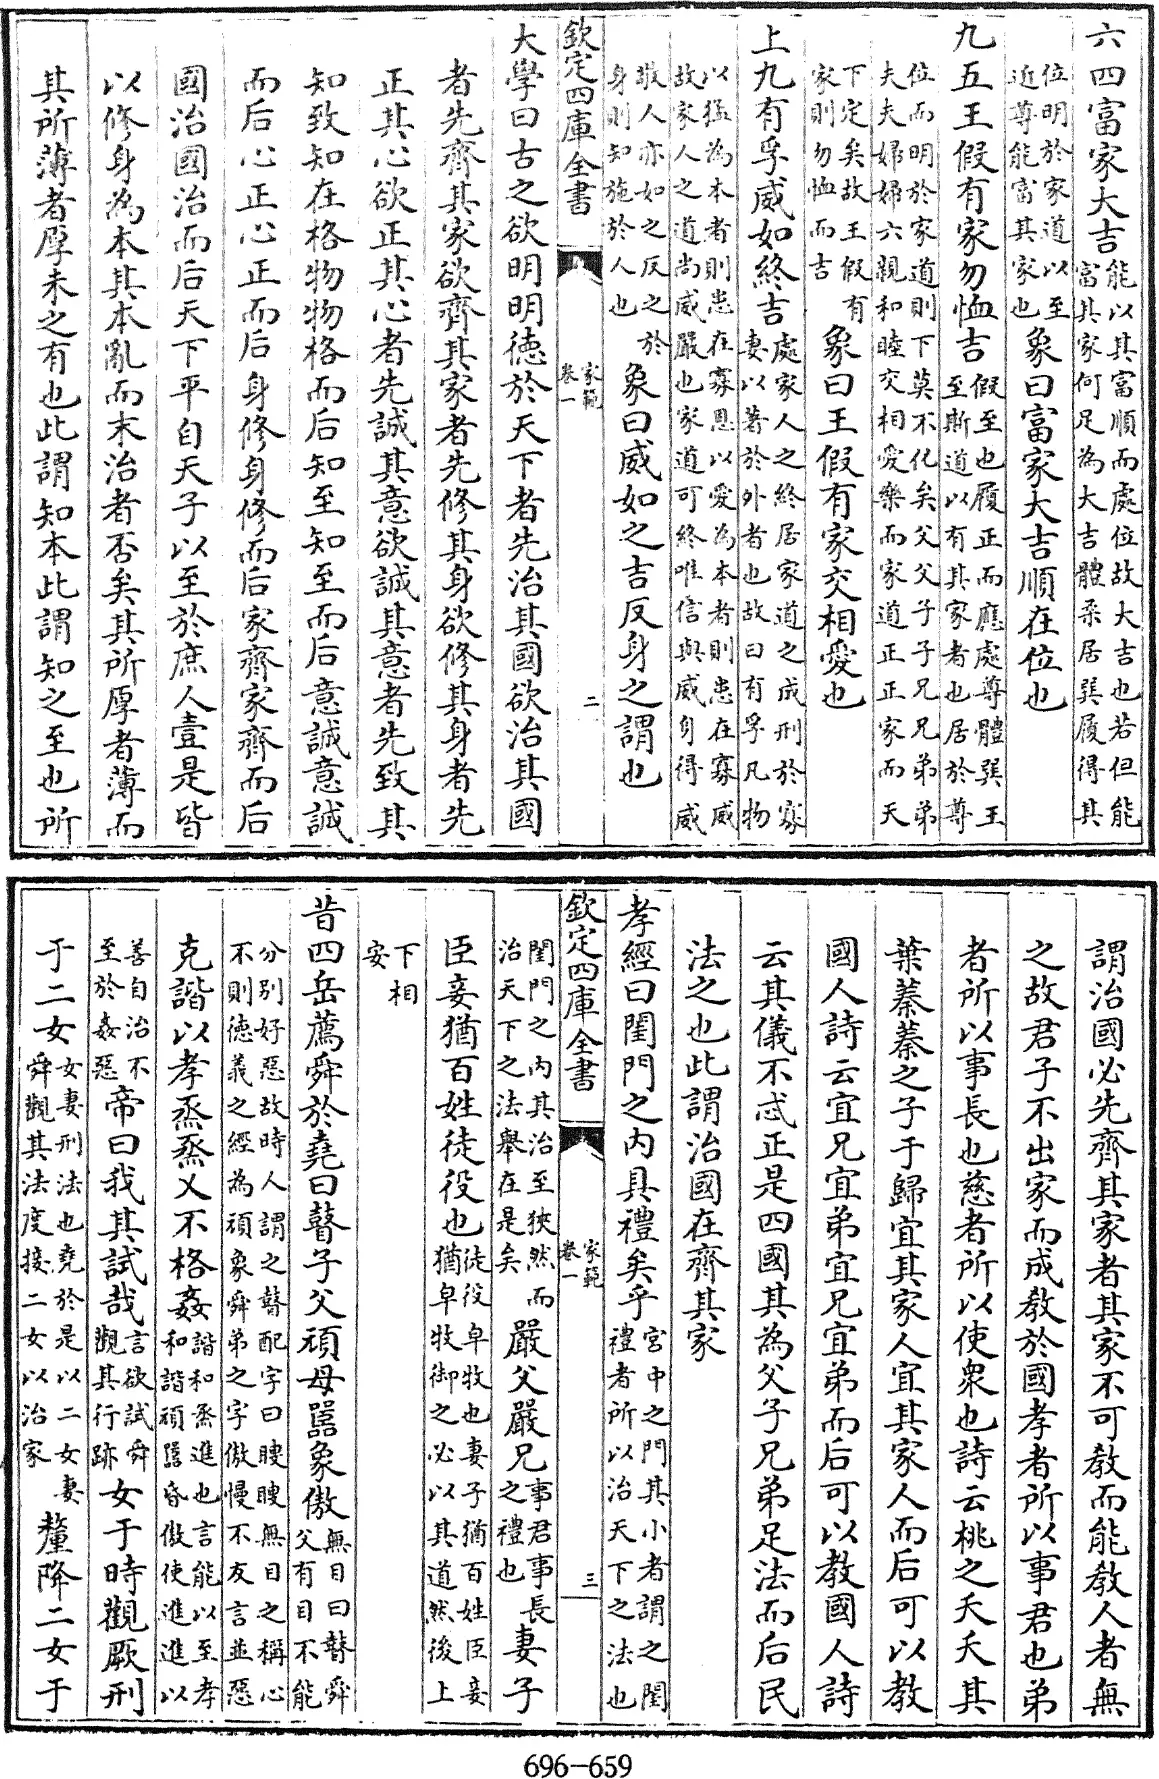 六四富家大吉能以其富順而處位故大吉也若但能富其家何足為大吉體柔居巽履得其
位明於家道以至近尊能富其家也象曰富家大吉順在位也
九五王假有家勿恤吉假至也履正而應處尊體巽王至斯道以有其家者也居於尊
位而明於家道則下莫不化矣父父子子兄兄弟弟夫夫婦婦六親和睦交相愛樂而家道正正家而天
下定矣故王假有家則勿恤而吉象曰王假有家交相愛也
上九有孚威如終吉處家人之終居家道之成刑於寡妻以著於外者也故曰有孚凡物
以猛為本者則患在寡恩以愛為本者則患在寡威故家人之道尚威嚴也家道可終唯信與威身得威
敬人亦如之反之於身則知施於人也象曰威如之吉反身之謂也
欽定四庫全書
家範
卷一
二
大學曰古之欲明明德於天下者先治其國欲治其國
者先齊其家欲齊其家者先修其身欲修其身者先
正其心欲正其心者先誠其意欲誠其意者先致其
知致知在格物物格而后知至知至而后意誠意誠
而后心正心正而后身修身修而后家齊家齊而后
國治國治而后天下平自天子以至於庶人壹是皆
以修身為本其本亂而末治者否矣其所厚者薄而
其所薄者厚未之有也此謂知本此謂知之至也所
謂治國必先齊其家者其家不可教而能教人者無
之故君子不出家而成教於國孝者所以事君也弟
者所以事長也慈者所以使衆也詩云桃之夭夭其
葉蓁蓁之子于歸宜其家人宜其家人而后可以教
國人詩云宜兄宜弟宜兄宜弟而后可以教國人詩
云其儀不忒正是四國其為父子兄弟足法而后民
法之也此謂治國在齊其家
孝經曰閨門之内具禮矣乎宮中之門其小者謂之閨禮者所以治天下之法也
欽定四庫全書
家範
卷一
三
閨門之内其治至狹然而治天下之法舉在是矣嚴父嚴兄事君事長之禮也妻子
臣妾猶百姓徒役也徒役卑牧也妻子猶百姓臣妾猶卑牧御之必以其道然後上
下相安
昔四岳薦舜於堯曰瞽子父頑母嚚象傲無目曰瞽舜父有目不能
分别好惡故時人謂之瞽配字曰瞍瞍無目之稱心不則德義之經為頑象舜弟之字傲慢不友言並惡
克諧以孝烝烝乂不格姦諧和烝進也言能以至孝和諧頑嚚昏傲使進進以
善自治不至於姦惡帝曰我其試哉言欲試舜觀其行跡女于時觀厥刑
于二女女妻刑法也堯於是以二女妻舜觀其法度接二女以治家釐降二女于
696-659